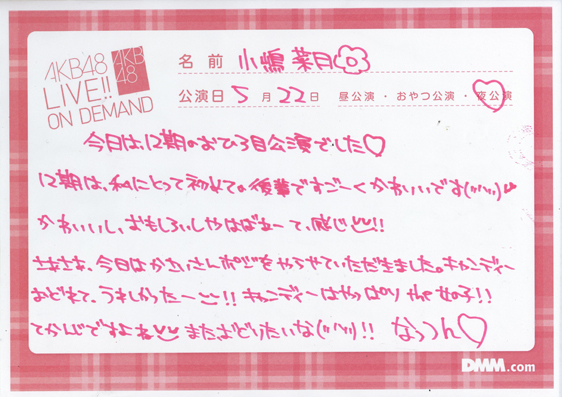 AKB48
LIVE!!
ON DEMAND
AKB
48
名前 小嶋菜月
公演日 5月22日 昼公演・おやつ公演・夜公演
今日は、12期のおひろ目公演でした♡
12期は、私にとって初めての後輩ですごーくかわいいです(〃∩∩)♥
かわいいし、おもしろいしやばばぁーて、感じ!!
さぁさぁ、今日はかさいさんポジをやらせていただきました。キャンディー
おどれて、うれしかったー!! キャンディーはやっぱり the 女子!!
てかんじですよね またおどりたいな(〃∩∩)!! なっつん♡
DMM.com